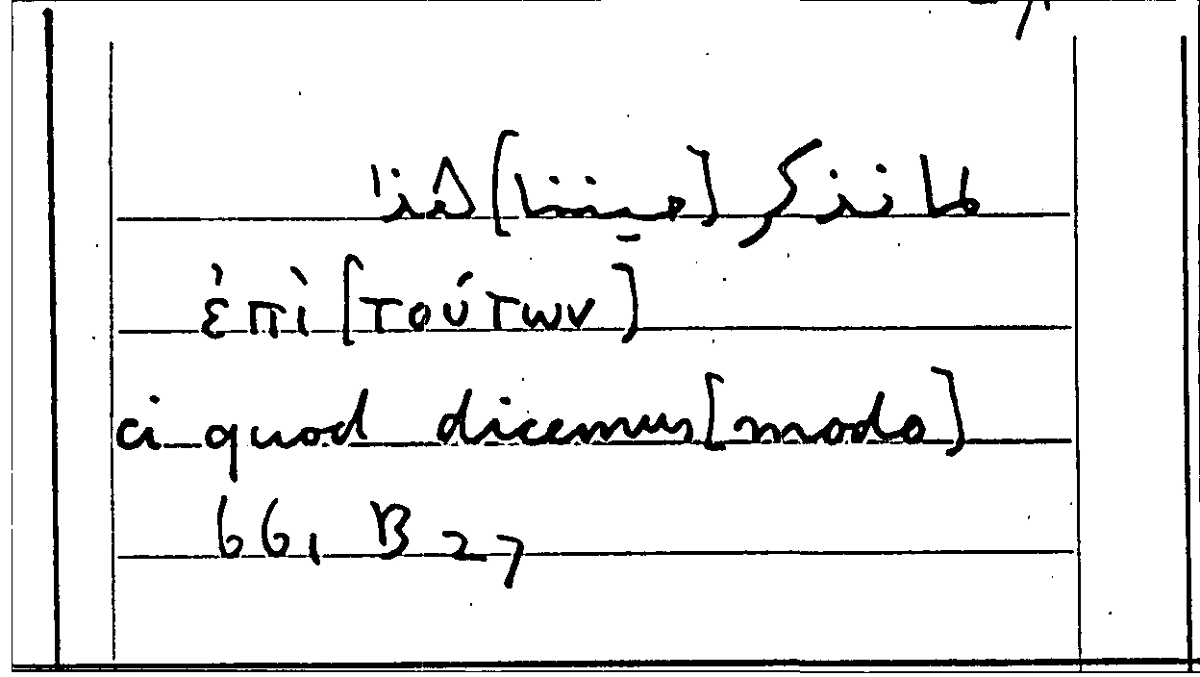 لما نذكر [حيننا] هذا
ἐπὶ [τούτων]
ei quod dicemus [modo]
66, B 27